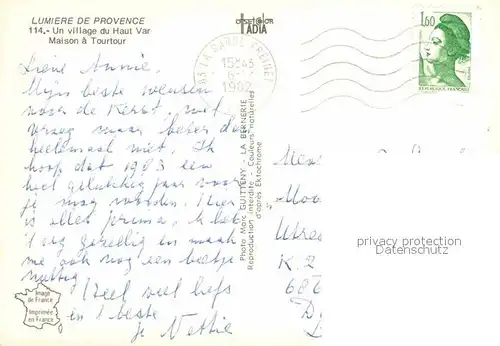 LUMIERE DE PROVENCE
114,- Un village du Haut Var
Maison à Tourtour
Lieve Annie,
Mijn beste wensen
voor de Kerst, niet
vroeg maar beter dan
helemaal niet. Ik
hoop dat 1983 een
heel gelukkig jaar voor
je mag worden. Hier
is alles prima, ik heb
't erg gezellig en maak
me ook nog een beetje
nuttig
Heel veel liefs
en 't beste
je Nettie
Image
de France
Imprimée
en France
Photo Marc GUITTENY - LA BERNERIE
Reproduction interdite - Couleurs naturelles
d'après Ektachrome
OFFSET COLOR
IADIA
83 LA GARDE FREINET
15H45
6
1983
1,60
REPUBLIQUE FRANÇAISE
K.2
privacy protection
Datenschutz